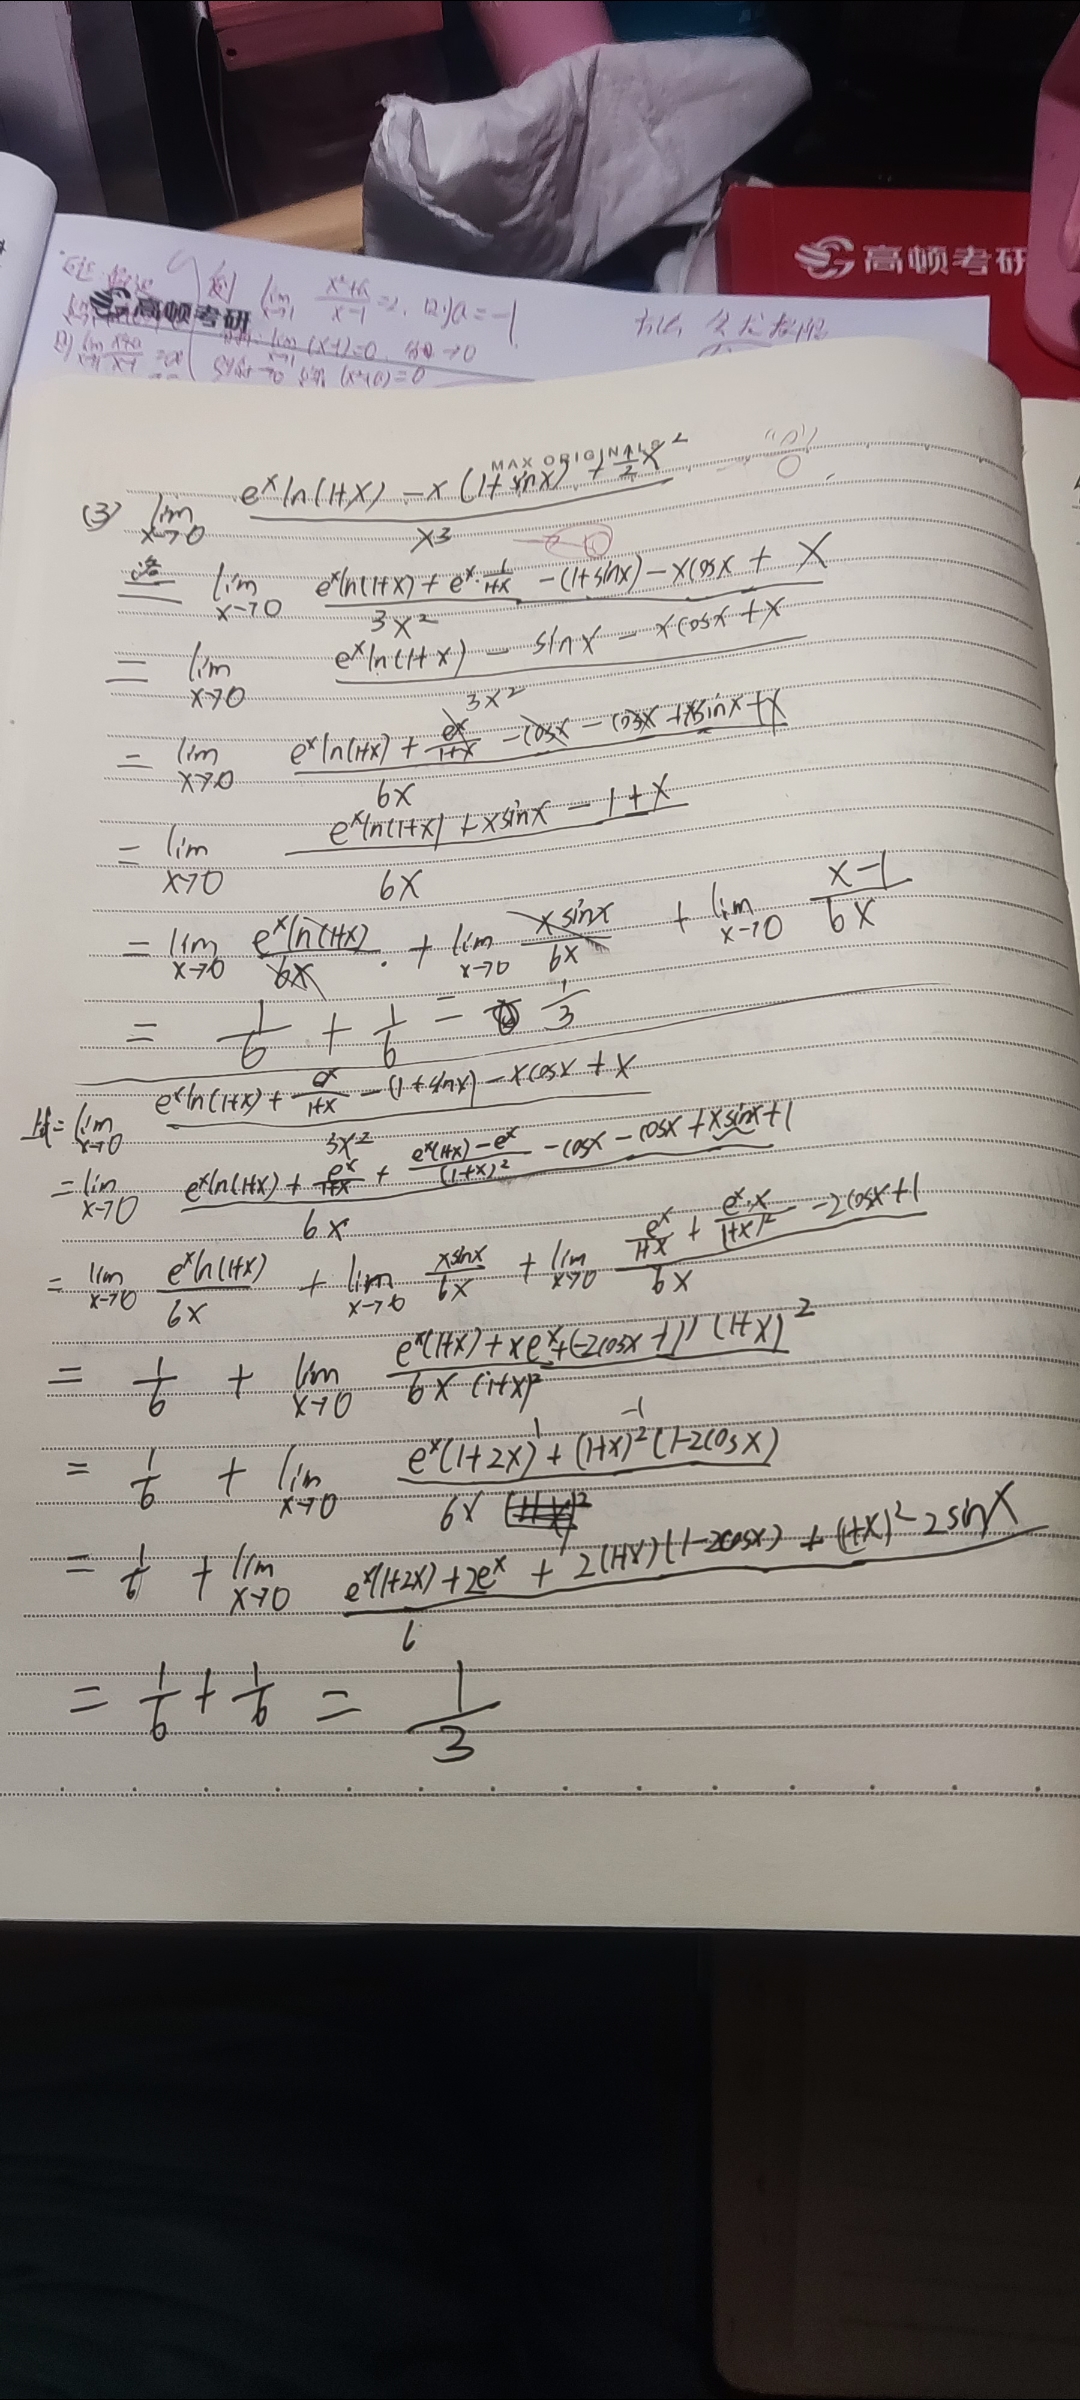 高顿考研
高顿考研
lim x→1 x²+a / x-1 =2, 则a=-1
MAX ORIGINALS
(3) lim x→0 e^x ln(1+x) - x(1+sinx) + 1/2 x² / x³
lim x→0 e^x ln(1+x) + e^x · 1/1+x - (1+sinx) - xcosx + x / 3x²
= lim x→0 e^x ln(1+x) - sinx - xcosx + x / 3x²
= lim x→0 e^x ln(1+x) + e^x/1+x - cosx - cosx + xsinx + x / 6x
= lim x→0 e^x ln(1+x) + xsinx - 1 + x / 6x
= lim x→0 e^x ln(1+x) / 6x + lim x→0 xsinx / 6x + lim x→0 x-1 / 6x
= 1/6 + 1/6 = 1/3
上式 = lim x→0 e^x ln(1+x) + e^x/1+x - (1+sinx) - xcosx + x / 3x²
= lim x→0 e^x ln(1+x) + e^x/1+x + e^x(1+x) - e^x/(1+x)² - cosx - cosx + xsinx + 1 / 6x
= lim x→0 e^x ln(1+x) / 6x + lim x→0 xsinx / 6x + lim x→0 e^x/1+x + e^x·x/(1+x)² - 2cosx + 1 / 6x
= 1/6 + lim x→0 e^x(1+x) + xe^x + (-2cosx + 1)(1+x)² / 6x(1+x)²
= 1/6 + lim x→0 e^x(1+2x) + (1+x)²(1-2cosx) / 6x
= 1/6 + lim x→0 e^x(1+2x) + 2e^x + 2(1+x)(1-2cosx) + (1+x)² 2sinx / 6
= 1/6 + 1/6 = 1/3